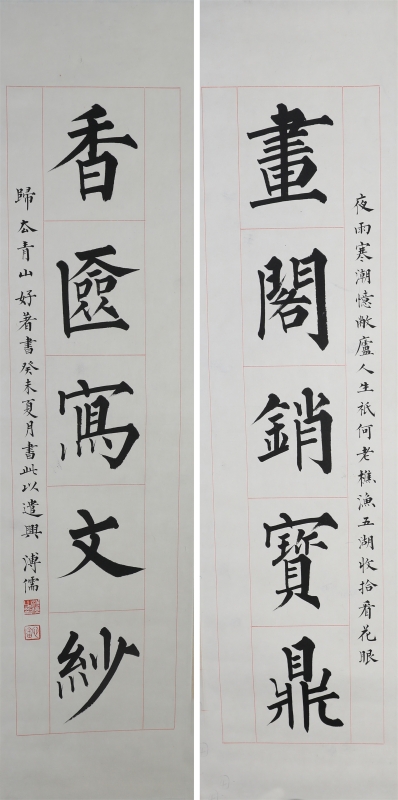 夜雨寒潮憶敝廬人生祇何老樵漁五湖收拾看花眼
畫閣銷寶鼎
香匲寫文紗
歸厺青山好著書癸未夏月書此以遣興 溥儒